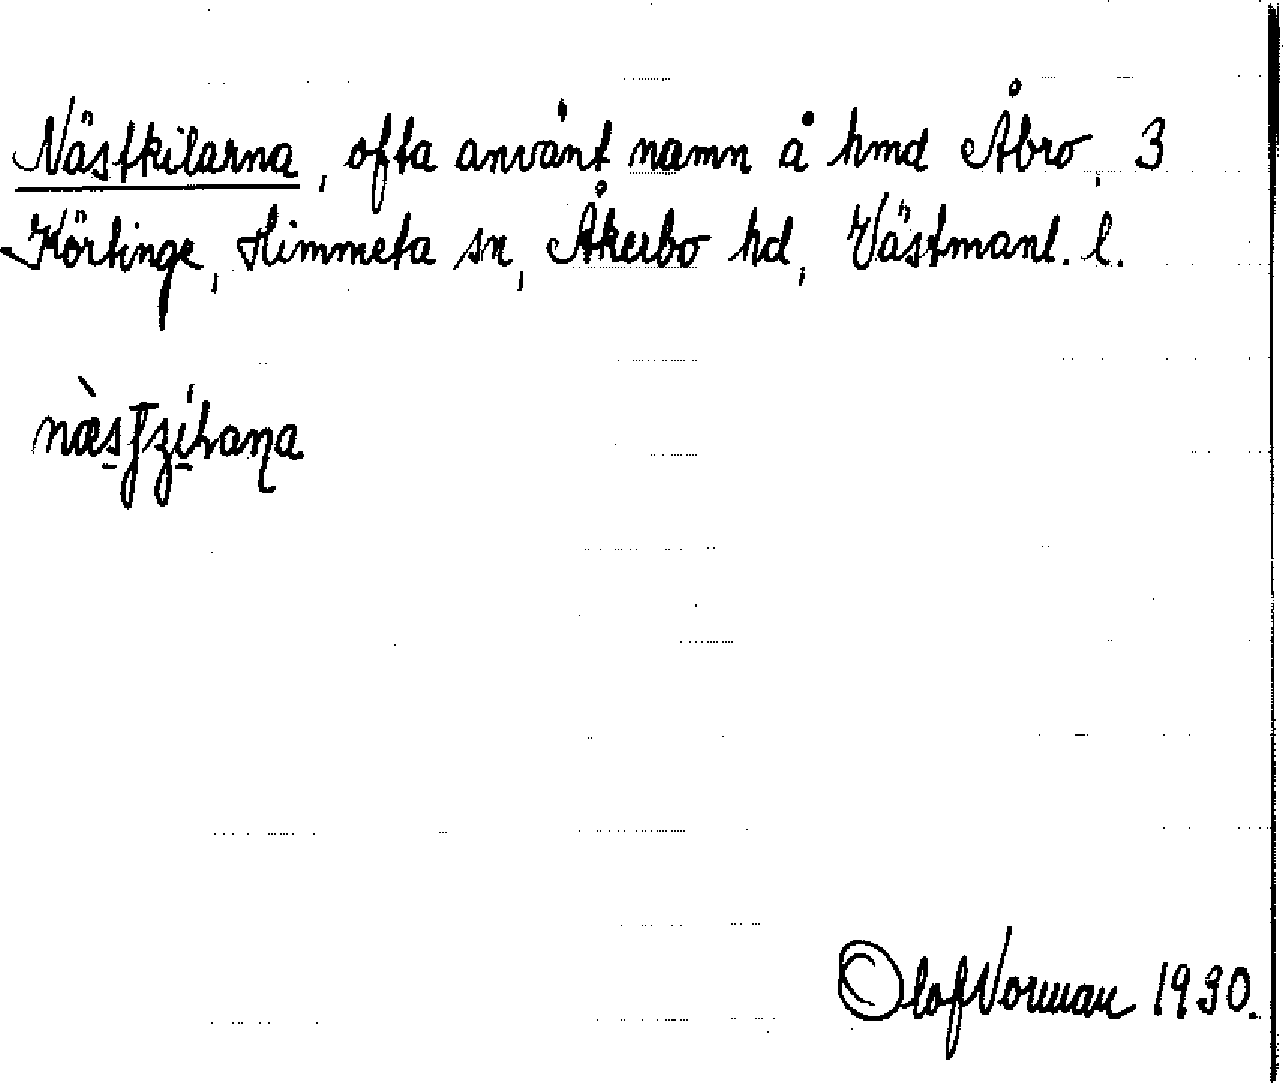 Nästkilarna, ofta använt namn å hmd Åbro, 3
Körtinge, Himmeta sn, Åkerbo hd, Västmanl. l.
Olof Norman 1930.